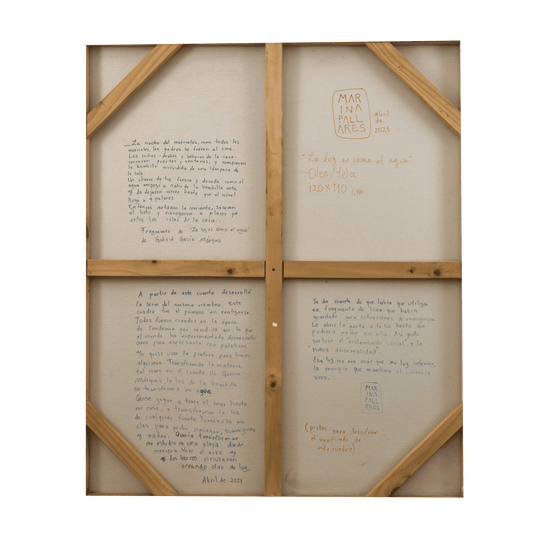 _La noche del miércoles, como todos los
miércoles, los padres se fueron al cine.
Los niños, dueños y señores de la casa,
cerraron puertas y ventanas, y rompieron
la bombilla encendida de una lámpara de
la sala.
Un chorro de luz dorada y fresca como el
agua empezó a salir de la bombilla rota,
y lo dejaron correr hasta que el nivel
llegó a 4 palmos.
Entonces cortaron la corriente, sacaron
el bote y navegaron a placer por
entre las islas de la casa...
Fragmento de "La luz es como el agua"
de Gabriel García Márquez
MAR
INA
PALL
ARES
abril
de
2021
"La luz es como el agua"
Oleo/tela
120 x 140 cm
A partir de este cuento desarrollé
la serie del mismo nombre. Este
cuadro fue el primero en realizarse.
Todos fueron creados en la época
de Pandemia por covid-19 en la que
el mundo ha experimentado demasiado
como para expresarlo con palabras.
Yo quise usar la pintura para hacer
algo
Transformar la materia
tal como en el cuento de García
Márquez, la luz de la bombilla
se transforma en agua.
Quise jugar a traer el mar hasta
mi casa, a transformar la luz
de cualquier fuente luminosa en
olas para poder
navegar
y nadar. Quería transformar
mi estudio en una playa donde
el aire y
los barcos
creando olas de luz.
Abril de 2021
Se da cuenta de que había que utilizar
un fragmento de
que había
guardado para situaciones de emergencia.
Le abrí la puerta a la luz hasta que
pudiera nadar en ella. Así pude
sortear el "aislamiento social" y la
"nueva anormalidad".
Esa luz no era más que mi luz interior
la energía que mantiene el universo
vivo.
MAR
INA
PALL
ARES
(pistas para descifrar
el significado de
este cuadro)